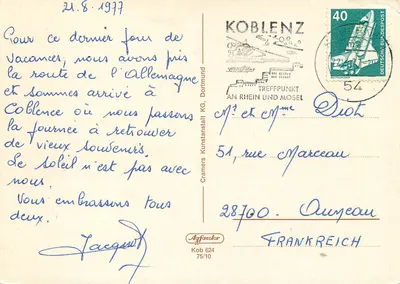 21.8.1977
Pour ce dernier jour de
vacances, nous avons pris
la route de l'Allemagne
et sommes arrivé à
Coblence où nous passons
la journée à retrouver
de "vieux souvenirs".
Le soleil n'est pas avec
nous.
Vous embrassons tous
deux.
Cramers Kunstanstalt KG, Dortmund
Agfacolor
Kob 624
75/10
KOBLENZ
TREFFPUNKT
AN RHEIN UND MOSEL
54
40
DEUTSCHE BUNDESPOST
Mr et Mme Diot
51, rue Marceau
28700. Auneau
FRANKREICH